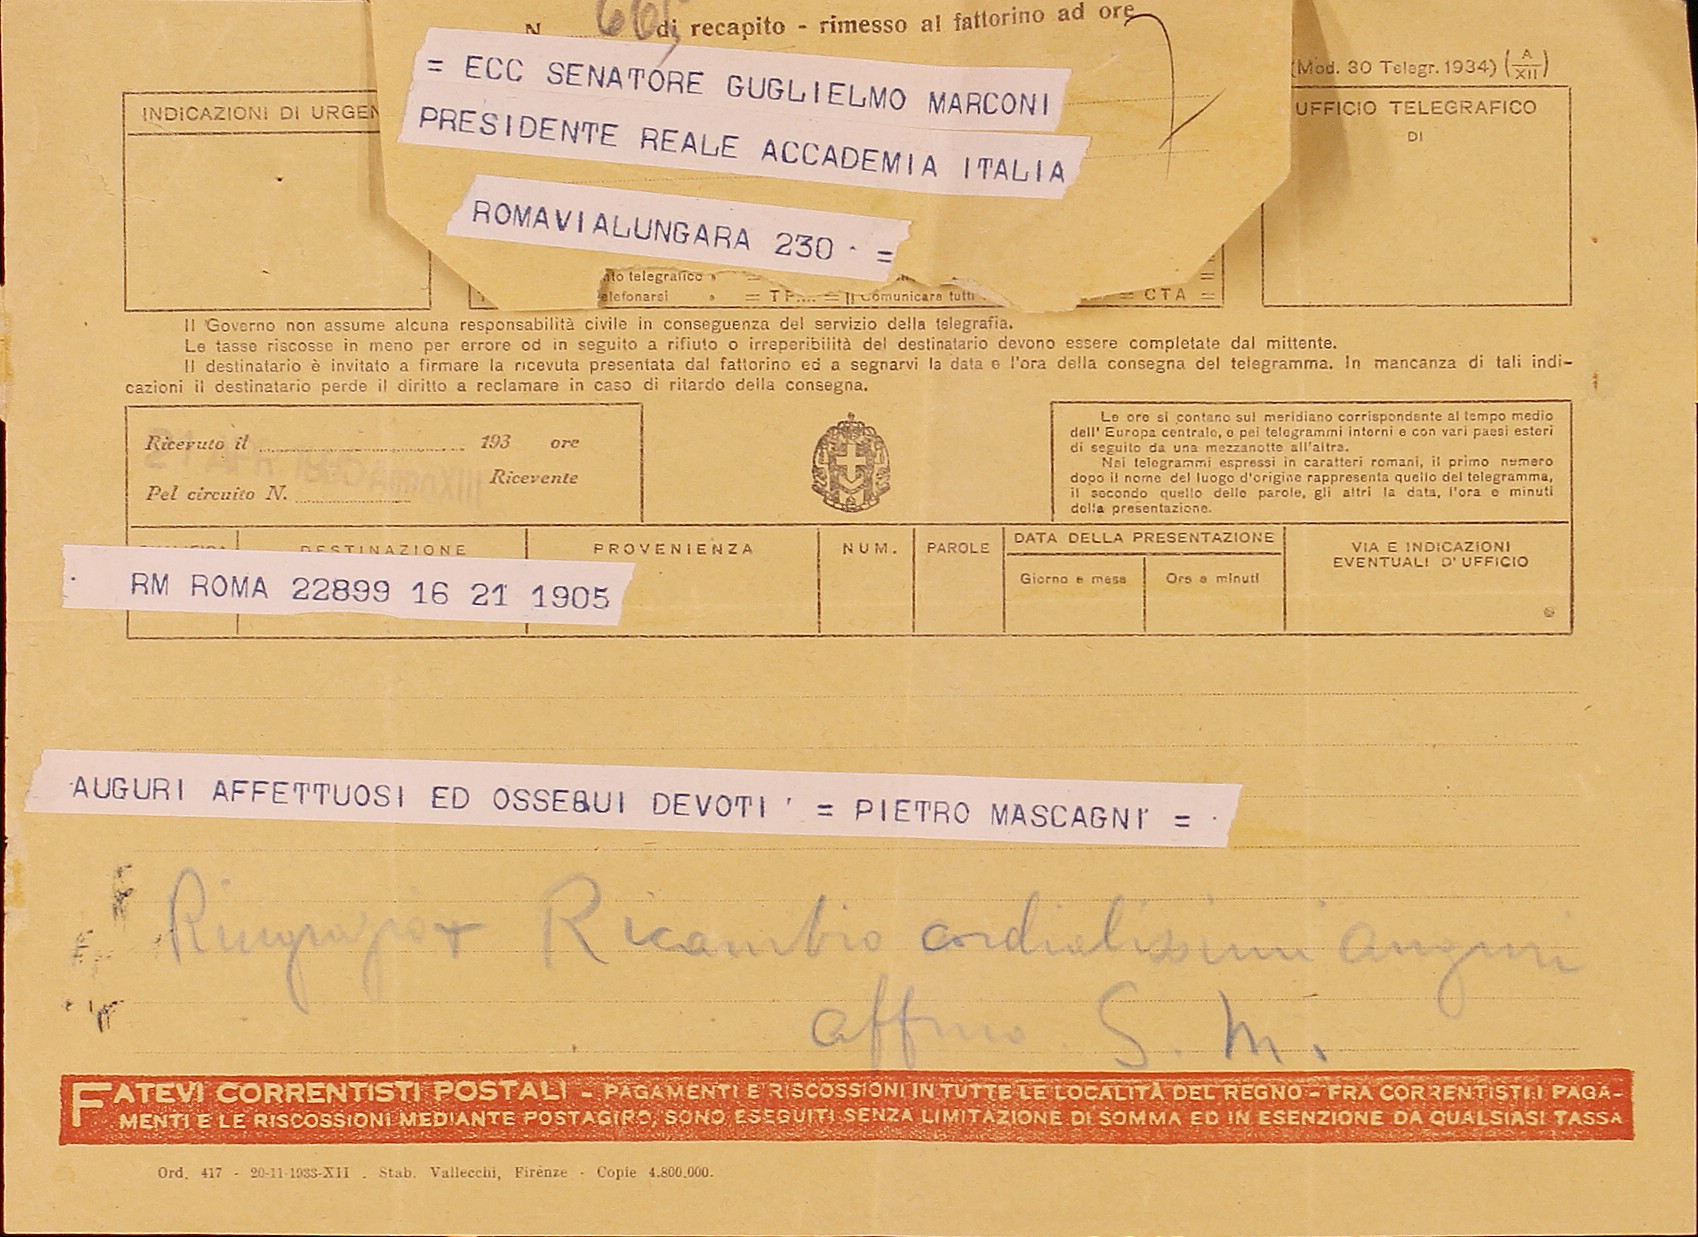 N. 66 di recapito - rimesso al fattorino ad ore
= ECC SENATORE GUGLIELMO MARCONI
PRESIDENTE REALE ACCADEMIA ITALIA
ROMAVIALUNGARA 230 =
(Mod. 30 Telegr. 1934) (A/XII)
INDICAZIONI DI URGEN
UFFICIO TELEGRAFICO
DI
to telegrafico »
elefonarsi » = TP.... = Comunicare tutti = CTA =
Il Governo non assume alcuna responsabilità civile in conseguenza del servizio della telegrafia.
Le tasse riscosse in meno per errore od in seguito a rifiuto o irreperibilità del destinatario devono essere completate dal mittente.
Il destinatario è invitato a firmare la ricevuta presentata dal fattorino ed a segnarvi la data e l'ora della consegna del telegramma. In mancanza di tali indi-
cazioni il destinatario perde il diritto a reclamare in caso di ritardo della consegna.
Ricevuto il 193 ore
Ricevente
Pel circuito N.
Le ore si contano sul meridiano corrispondente al tempo medio
dell' Europa centrale, e pei telegrammi interni e con vari paesi esteri
di seguito da una mezzanotte all'altra.
Nei telegrammi espressi in caratteri romani, il primo numero
dopo il nome del luogo d'origine rappresenta quello del telegramma,
il secondo quello delle parole, gli altri la data, l'ora e minuti
della presentazione.
DESTINAZIONE
PROVENIENZA
NUM.
PAROLE
DATA DELLA PRESENTAZIONE
Giorno e mese
Ore e minuti
VIA E INDICAZIONI
EVENTUALI D'UFFICIO
RM ROMA 22899 16 21 1905
AUGURI AFFETTUOSI ED OSSEQUI DEVOTI = PIETRO MASCAGNI =
Ringrazio + Ricambio cordialissimi auguri
affmo G. M.
FATEVI CORRENTISTI POSTALI - PAGAMENTI E RISCOSSIONI IN TUTTE LE LOCALITÀ DEL REGNO - FRA CORRENTISTI: I PAGA-
MENTI E LE RISCOSSIONI MEDIANTE POSTAGIRO, SONO ESEGUITI SENZA LIMITAZIONE DI SOMMA ED IN ESENZIONE DA QUALSIASI TASSA
Ord. 417 - 20-11-1933-XII . Stab. Vallecchi, Firenze - Copie 4.800.000.